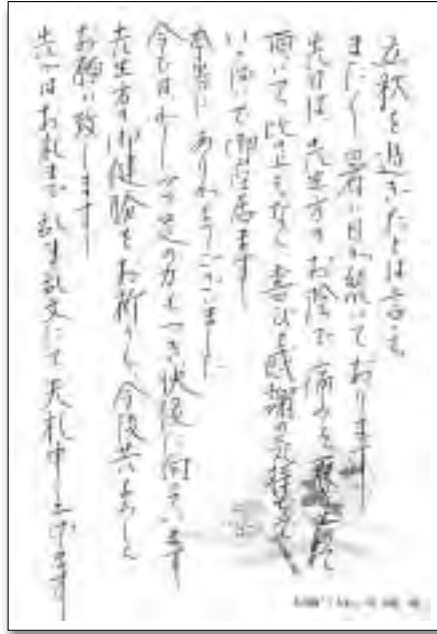 立秋を過ぎたとは言え
まだまだ暑い日が続いております
先日は、先生方のお陰で痛みを
頂いて 此の上もなく 喜びと感謝の気持
いっぱいで御座居ます
本当に ありがとうございました
今では、少しづつ足の力もつき 快復に向っています
先生方の御健康をお祈りし 今後共よろしく
お願い致します
先ずはお礼まで 乱筆乱文にて 失礼申し上げます